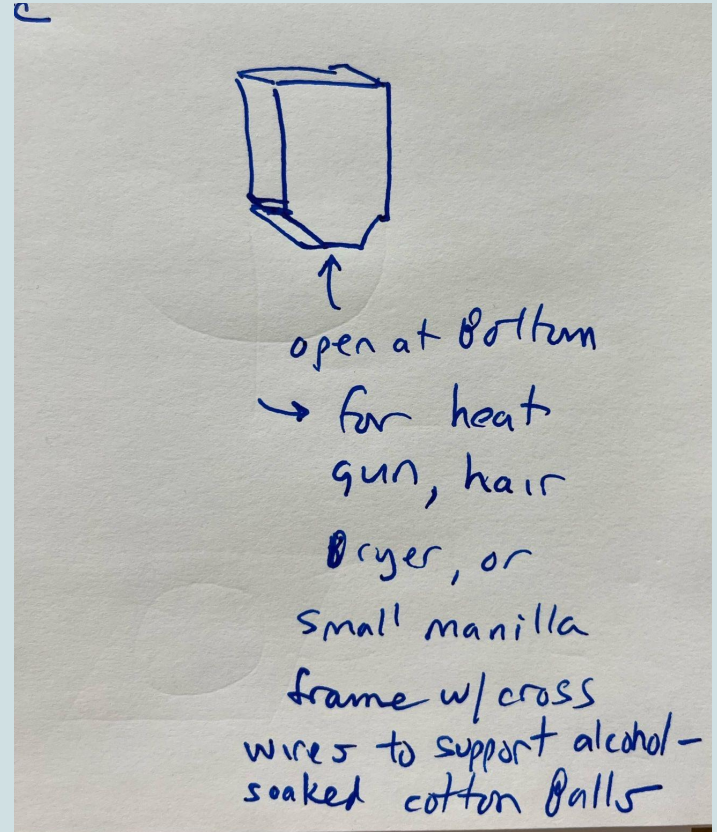 open at Bottum
→ for heat
gun, hair
Dryer, or
small manilla
frame w/ cross
wires to support alcohol-
soaked cotton Balls